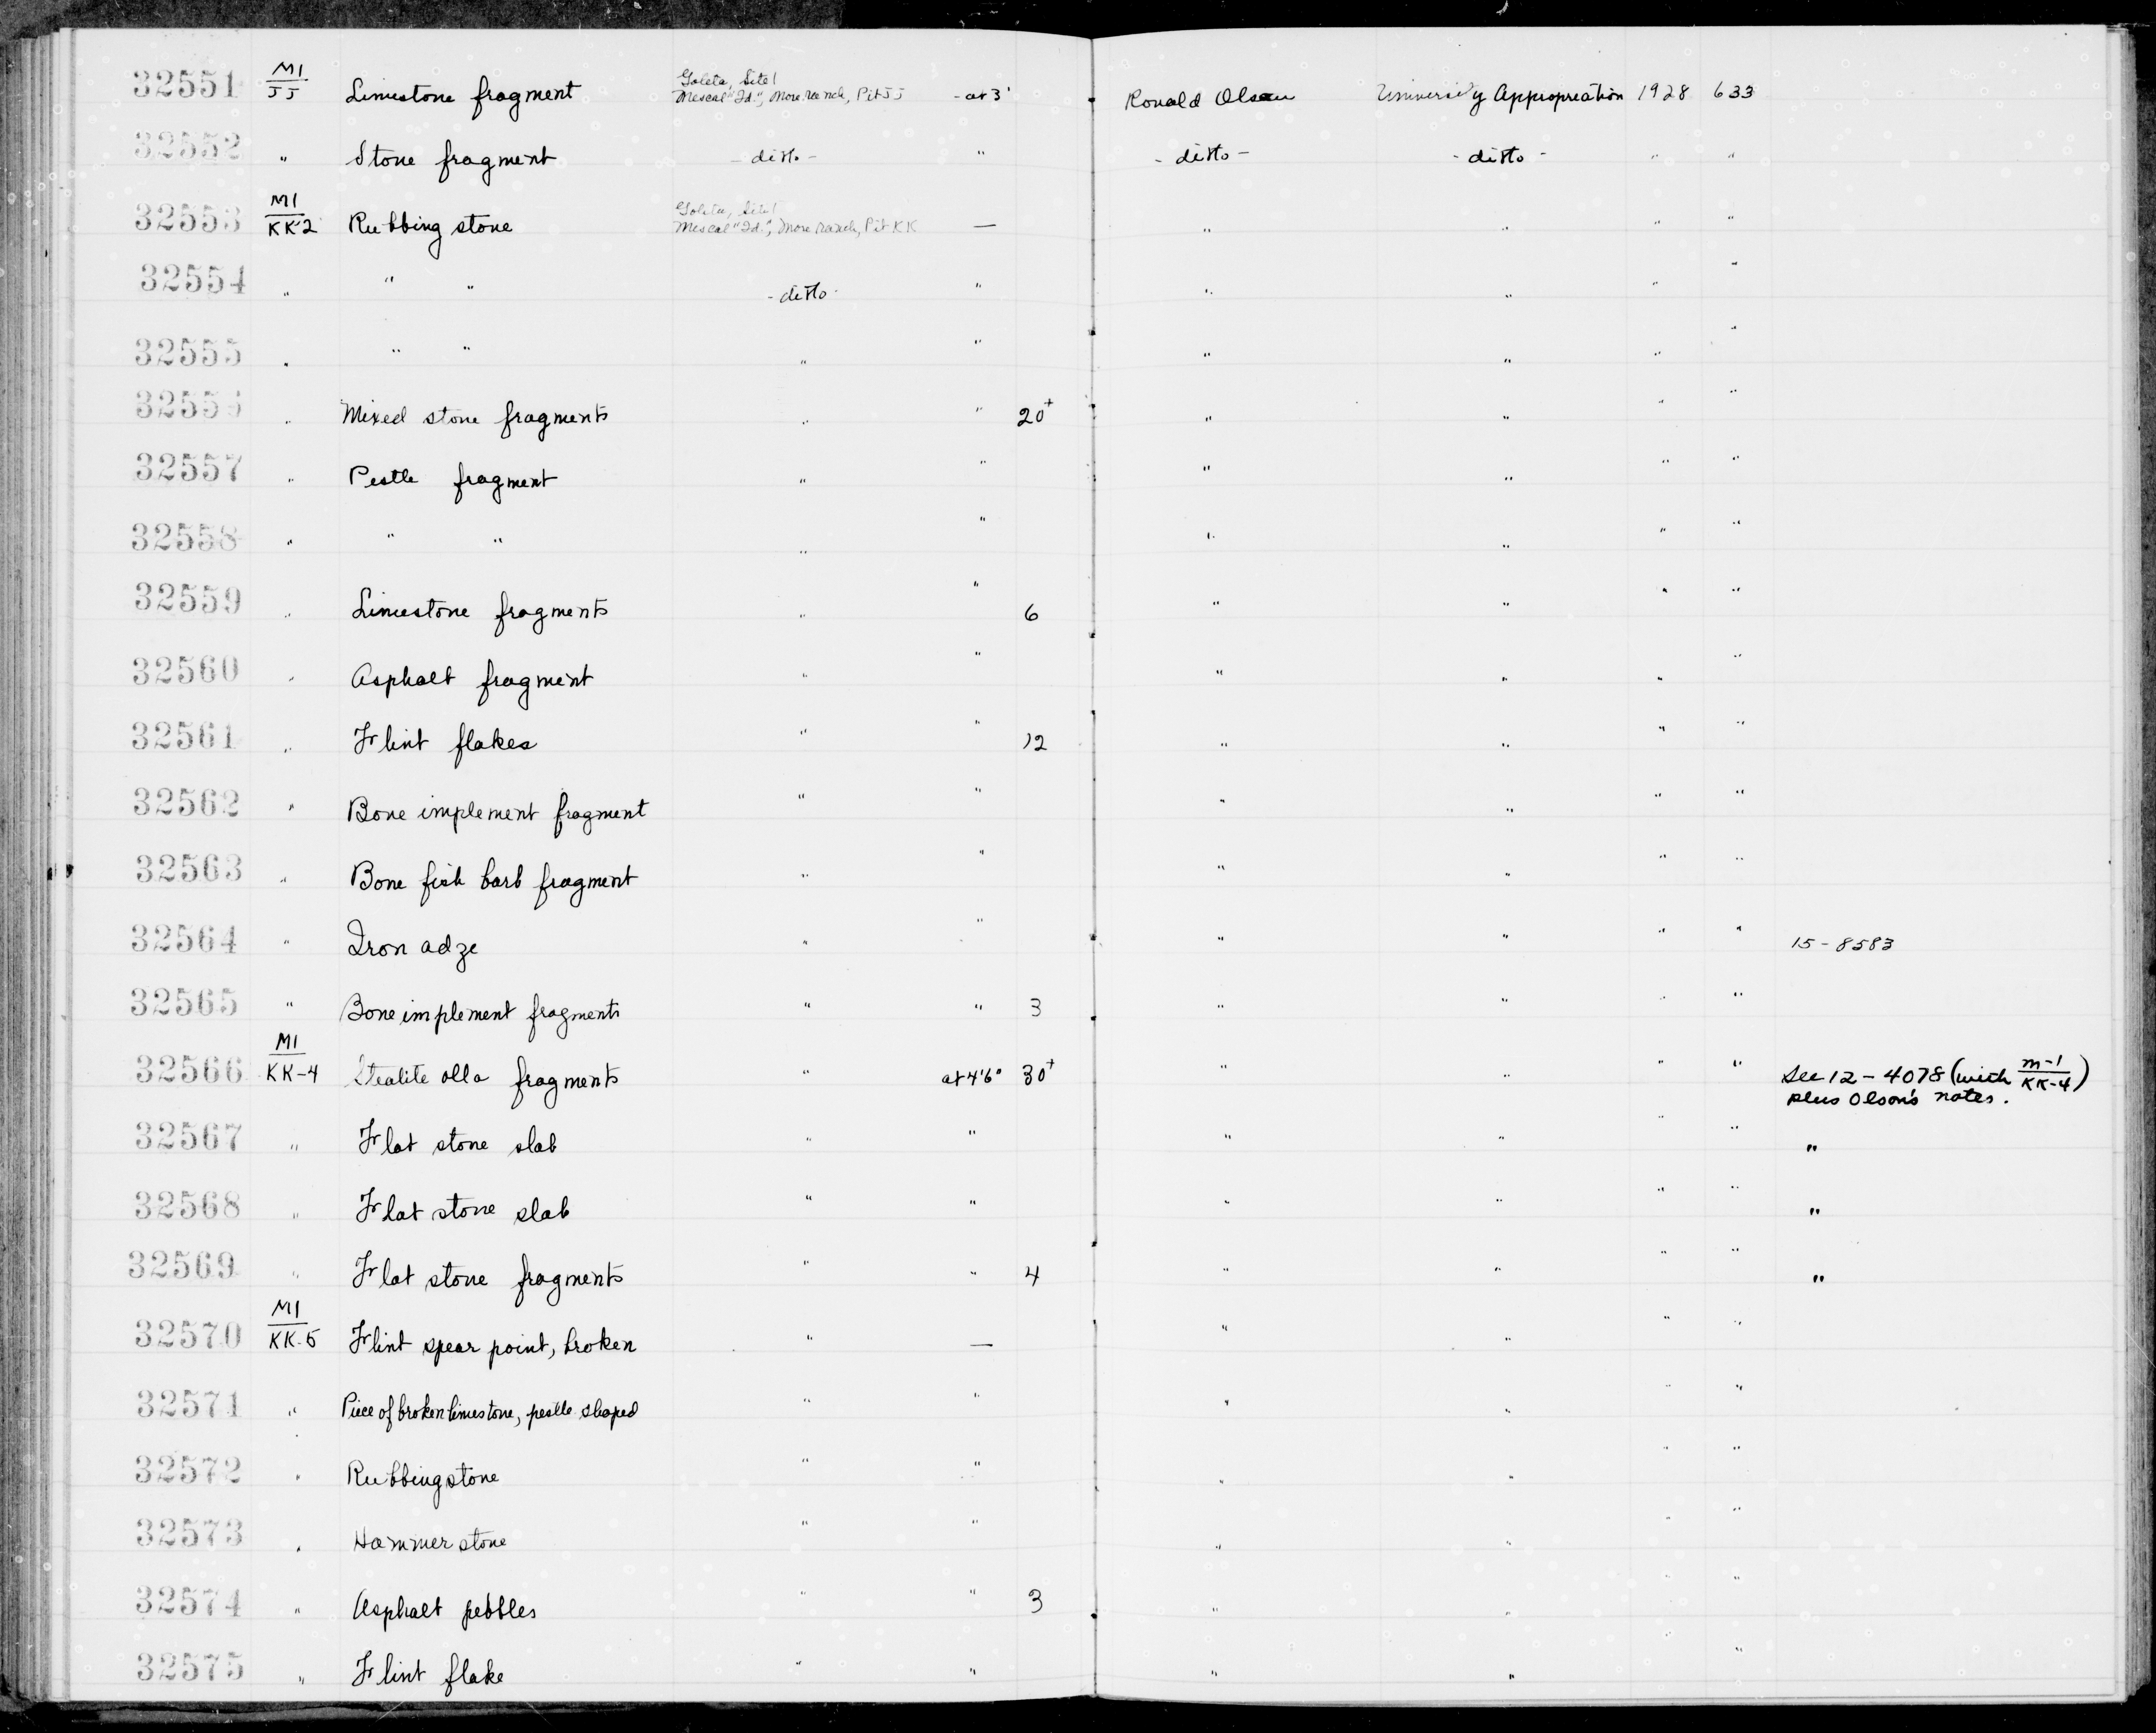 32551 M1/JJ Limestone fragment Goleta, Site 1 Mescal "Id.", More ranch, Pit JJ - at 3' Ronald Olson University Appropriation 1928 633
32552 " Stone fragment - ditto - " - ditto - - ditto - " "
32553 M1/KK2 Rubbing stone Goleta, Site 1 Mescal "Id.", More ranch, Pit KK — " " " "
32554 " " " - ditto - " " " " "
32555 " " " " " " " " "
32556 " Mixed stone fragments " " 20+ " " " "
32557 " Pestle fragment " " " " " "
32558 " " " " " " " " "
32559 " Limestone fragments " " 6 " " " "
32560 " Asphalt fragment " " " " " "
32561 " Flint flakes " " 12 " " " "
32562 " Bone implement fragment " " " " " "
32563 " Bone fish barb fragment " " " " " "
32564 " Iron adze " " " " " " 15-8583
32565 " Bone implement fragments " " 3 " " " "
32566 M1/KK-4 Steatite olla fragments " at 4'6" 30+ " " " " See 12-4078 (with M-1/KK-4)
plus Olson's notes.
32567 " Flat stone slab " " " " " " "
32568 " Flat stone slab " " " " " " "
32569 " Flat stone fragments " " 4 " " " " "
32570 M1/KK-5 Flint spear point, broken " — " " " "
32571 " Piece of broken limestone, pestle shaped " " " " " "
32572 " Rubbing stone " " " " " "
32573 " Hammer stone " " " " " "
32574 " Asphalt pebbles " " 3 " " " "
32575 " Flint flake " " " " " "